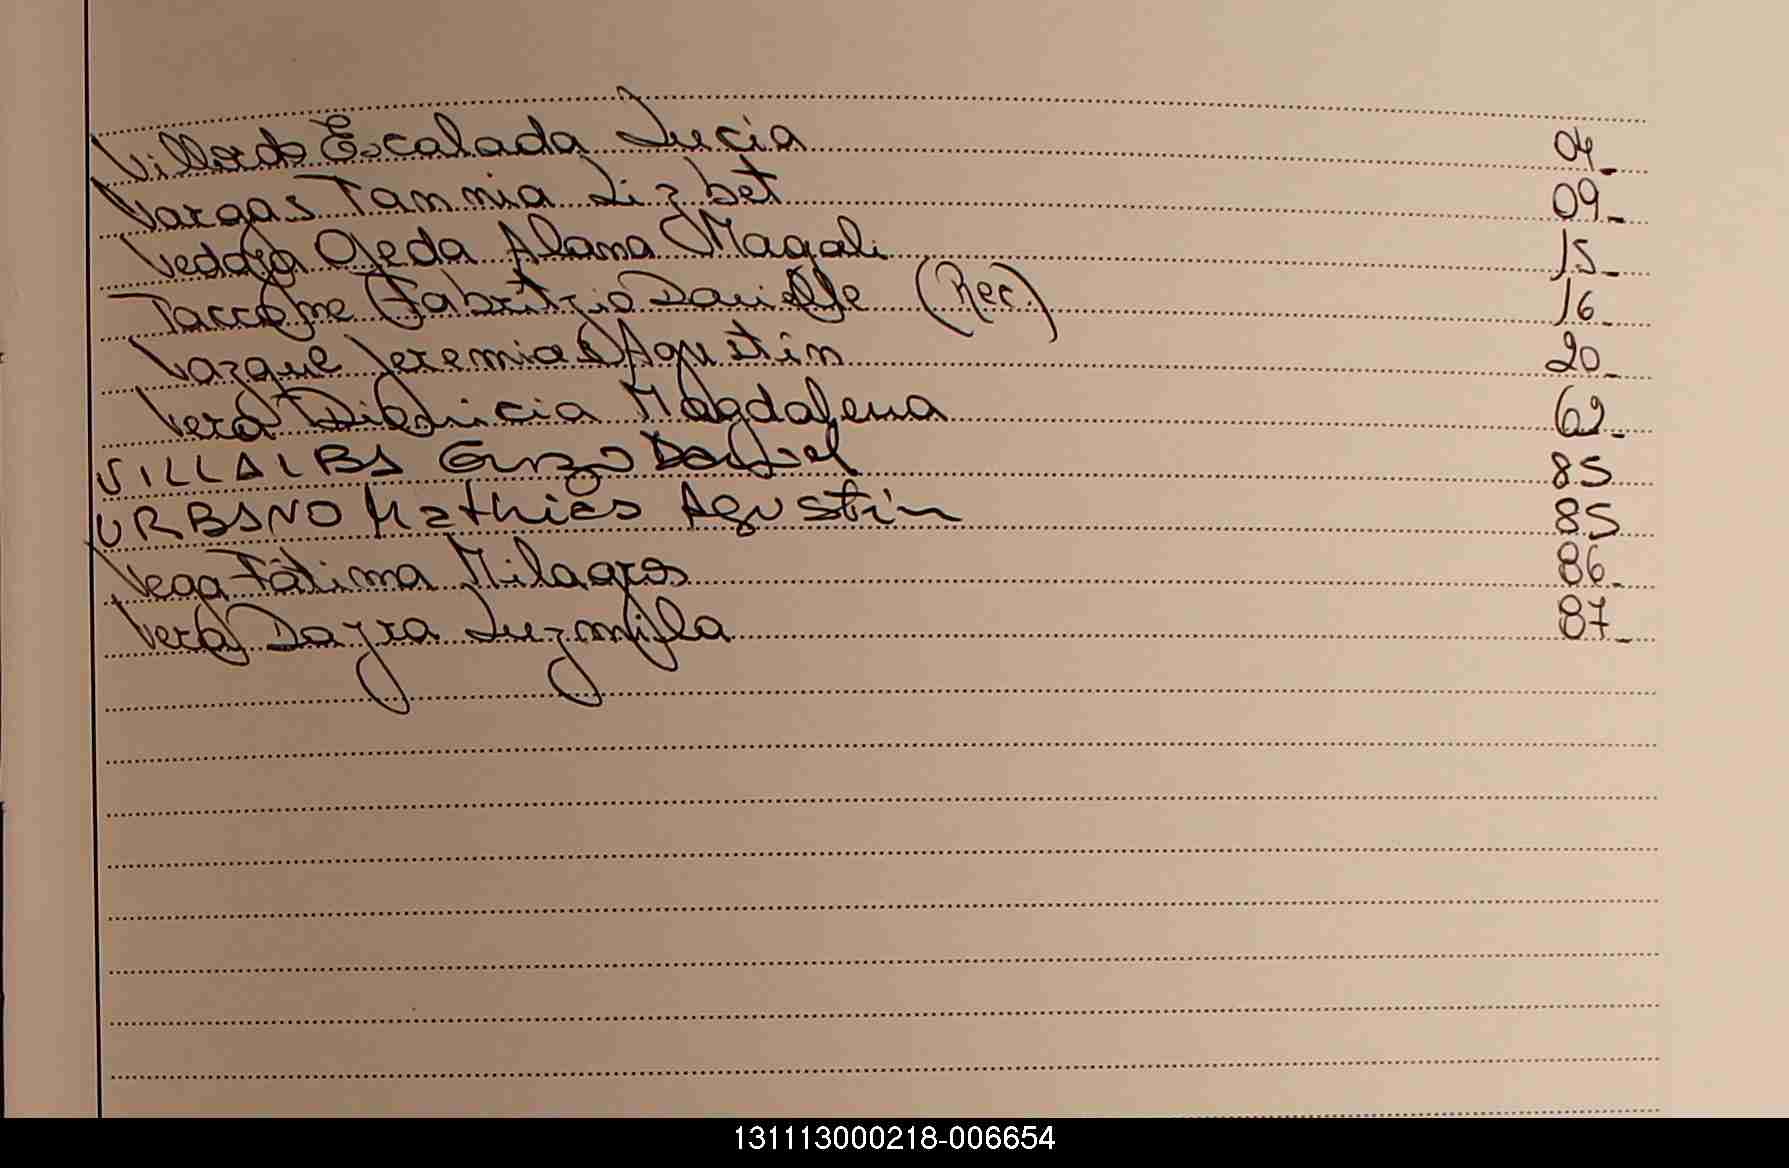 Villordo Escalada Lucia 04_
Vargas Tannia Lizbet 09_
Vedoya Ojeda Alana Magali 15_
Taccone Fabritzio Danielle (Rec.) 16_
Vazque Jeremias Agustin 20_
Vera Magdalena 62_
VILLALBA Enzo Daniel 85
URBANO Mathias Agustin 85
Vega Fátima Milagros 86_
Vera Dayra Luzmila 87_
131113000218-006654